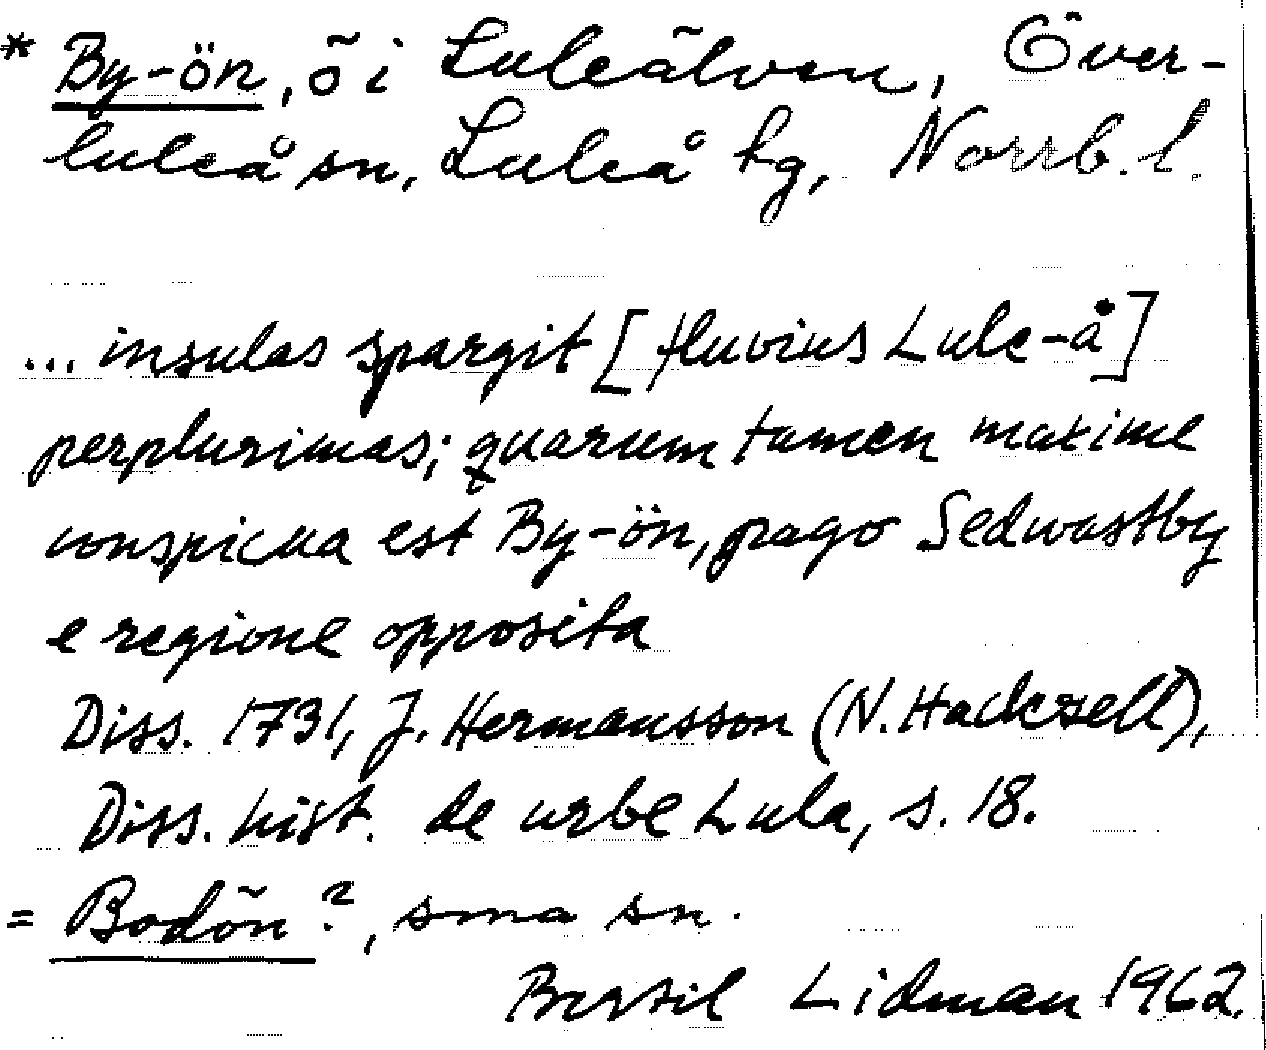 * By-ön, ö i Luleälven, Över-
luleå sn, Luleå tg, Norrb. l.
... insulas spargit [fluvius Lule-å]
perplurimas; quarum tamen maxime
conspicua est By-ön, pago Sedwastby
e regione opposita
Diss. 1731, J. Hermansson (N. Hackzell),
Diss. hist. de urbe Lula, s. 18.
= Bodön?, sma sn.
Bertil Lidman 1962.